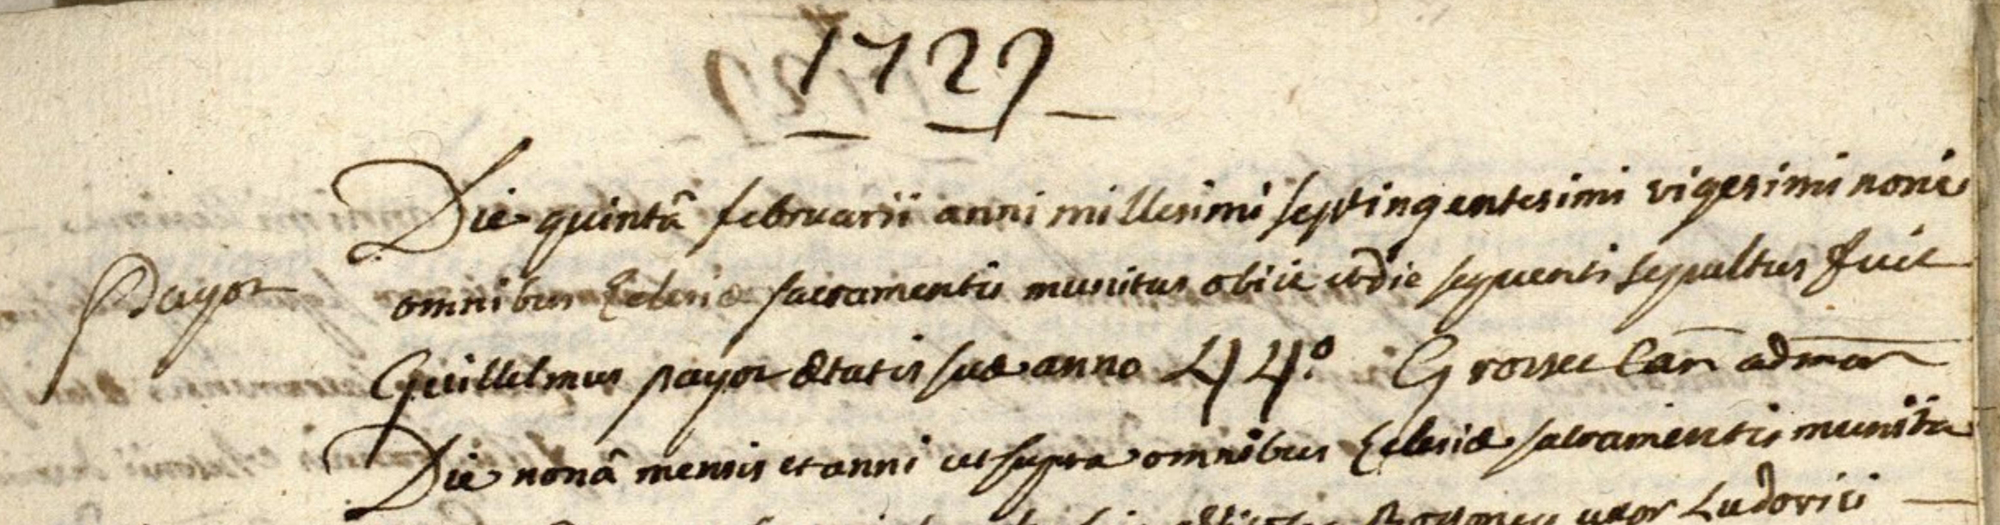 1729
Die quintâ februarii anni millesimi septingentesimi vigesimi noni
Payot
omnibus Eclesiæ sacramentis munitus obiit et die sequenti sepultus fuit
Guillelmus payot ætatis suæ anno 44.º Grosset Can adm
Die nonâ mensis et anni ut supra omnibus Eclesiæ sacramentis munita
uxor Ludovici